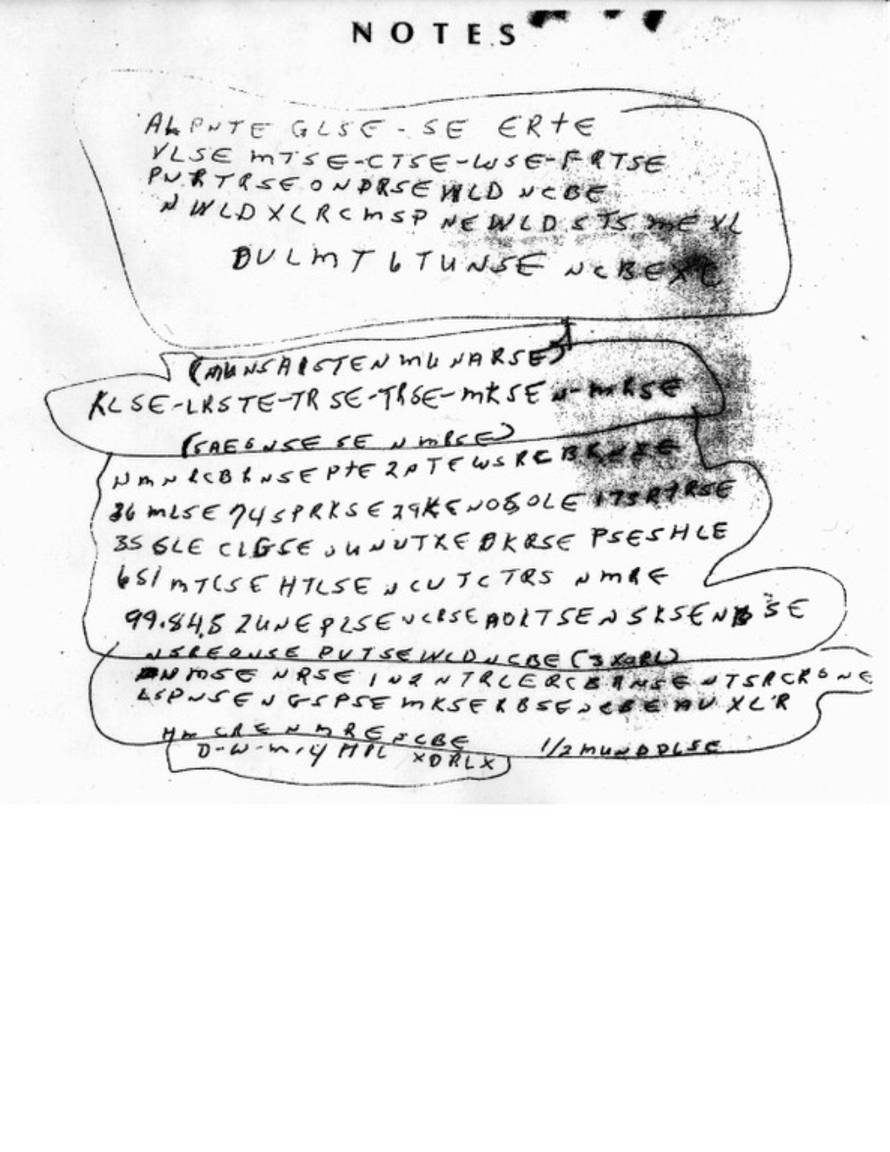 NOTES
ALPNTE GLSE - SE ERTE
VLSE MTSE-CTSE-WSE-FRTSE
PNRTRSEONDRSEWLD NCBE
NWLDXLRCMSP NEWLDSTS MEXL
DULMT6TUNSE NCBEXC
(MUNSAISTEN MU NARSE)
KLSE-LKSTE-TRSE-TRSE-MKSEN-MRSE
(SAEGNSE SE NMRSE)
NMNRCBRNSEPTE2PTEWSRCBRNSE
36MLSE74SPRKSE29KENOSOLE173RTRSE
35GLE CLGSE UNUTXE DKRSE PSESHLE
651MTCSE HTLSE NCUTCTRS NMRE
99.84.52UNEPLSENCRSEAOLTSENSKSENBSE
NSREONSE PUTSEWLDNCBE(3XORL)
NMSE NRSE IN2NTRLERCBRNSENTSRCRONE
LSPNSENGSPSE MKSERBSENCBEAUXL'R
HM CRENMRENCBE 1/2MUNDDLSE
D-W-M-4 MPL XDRLX